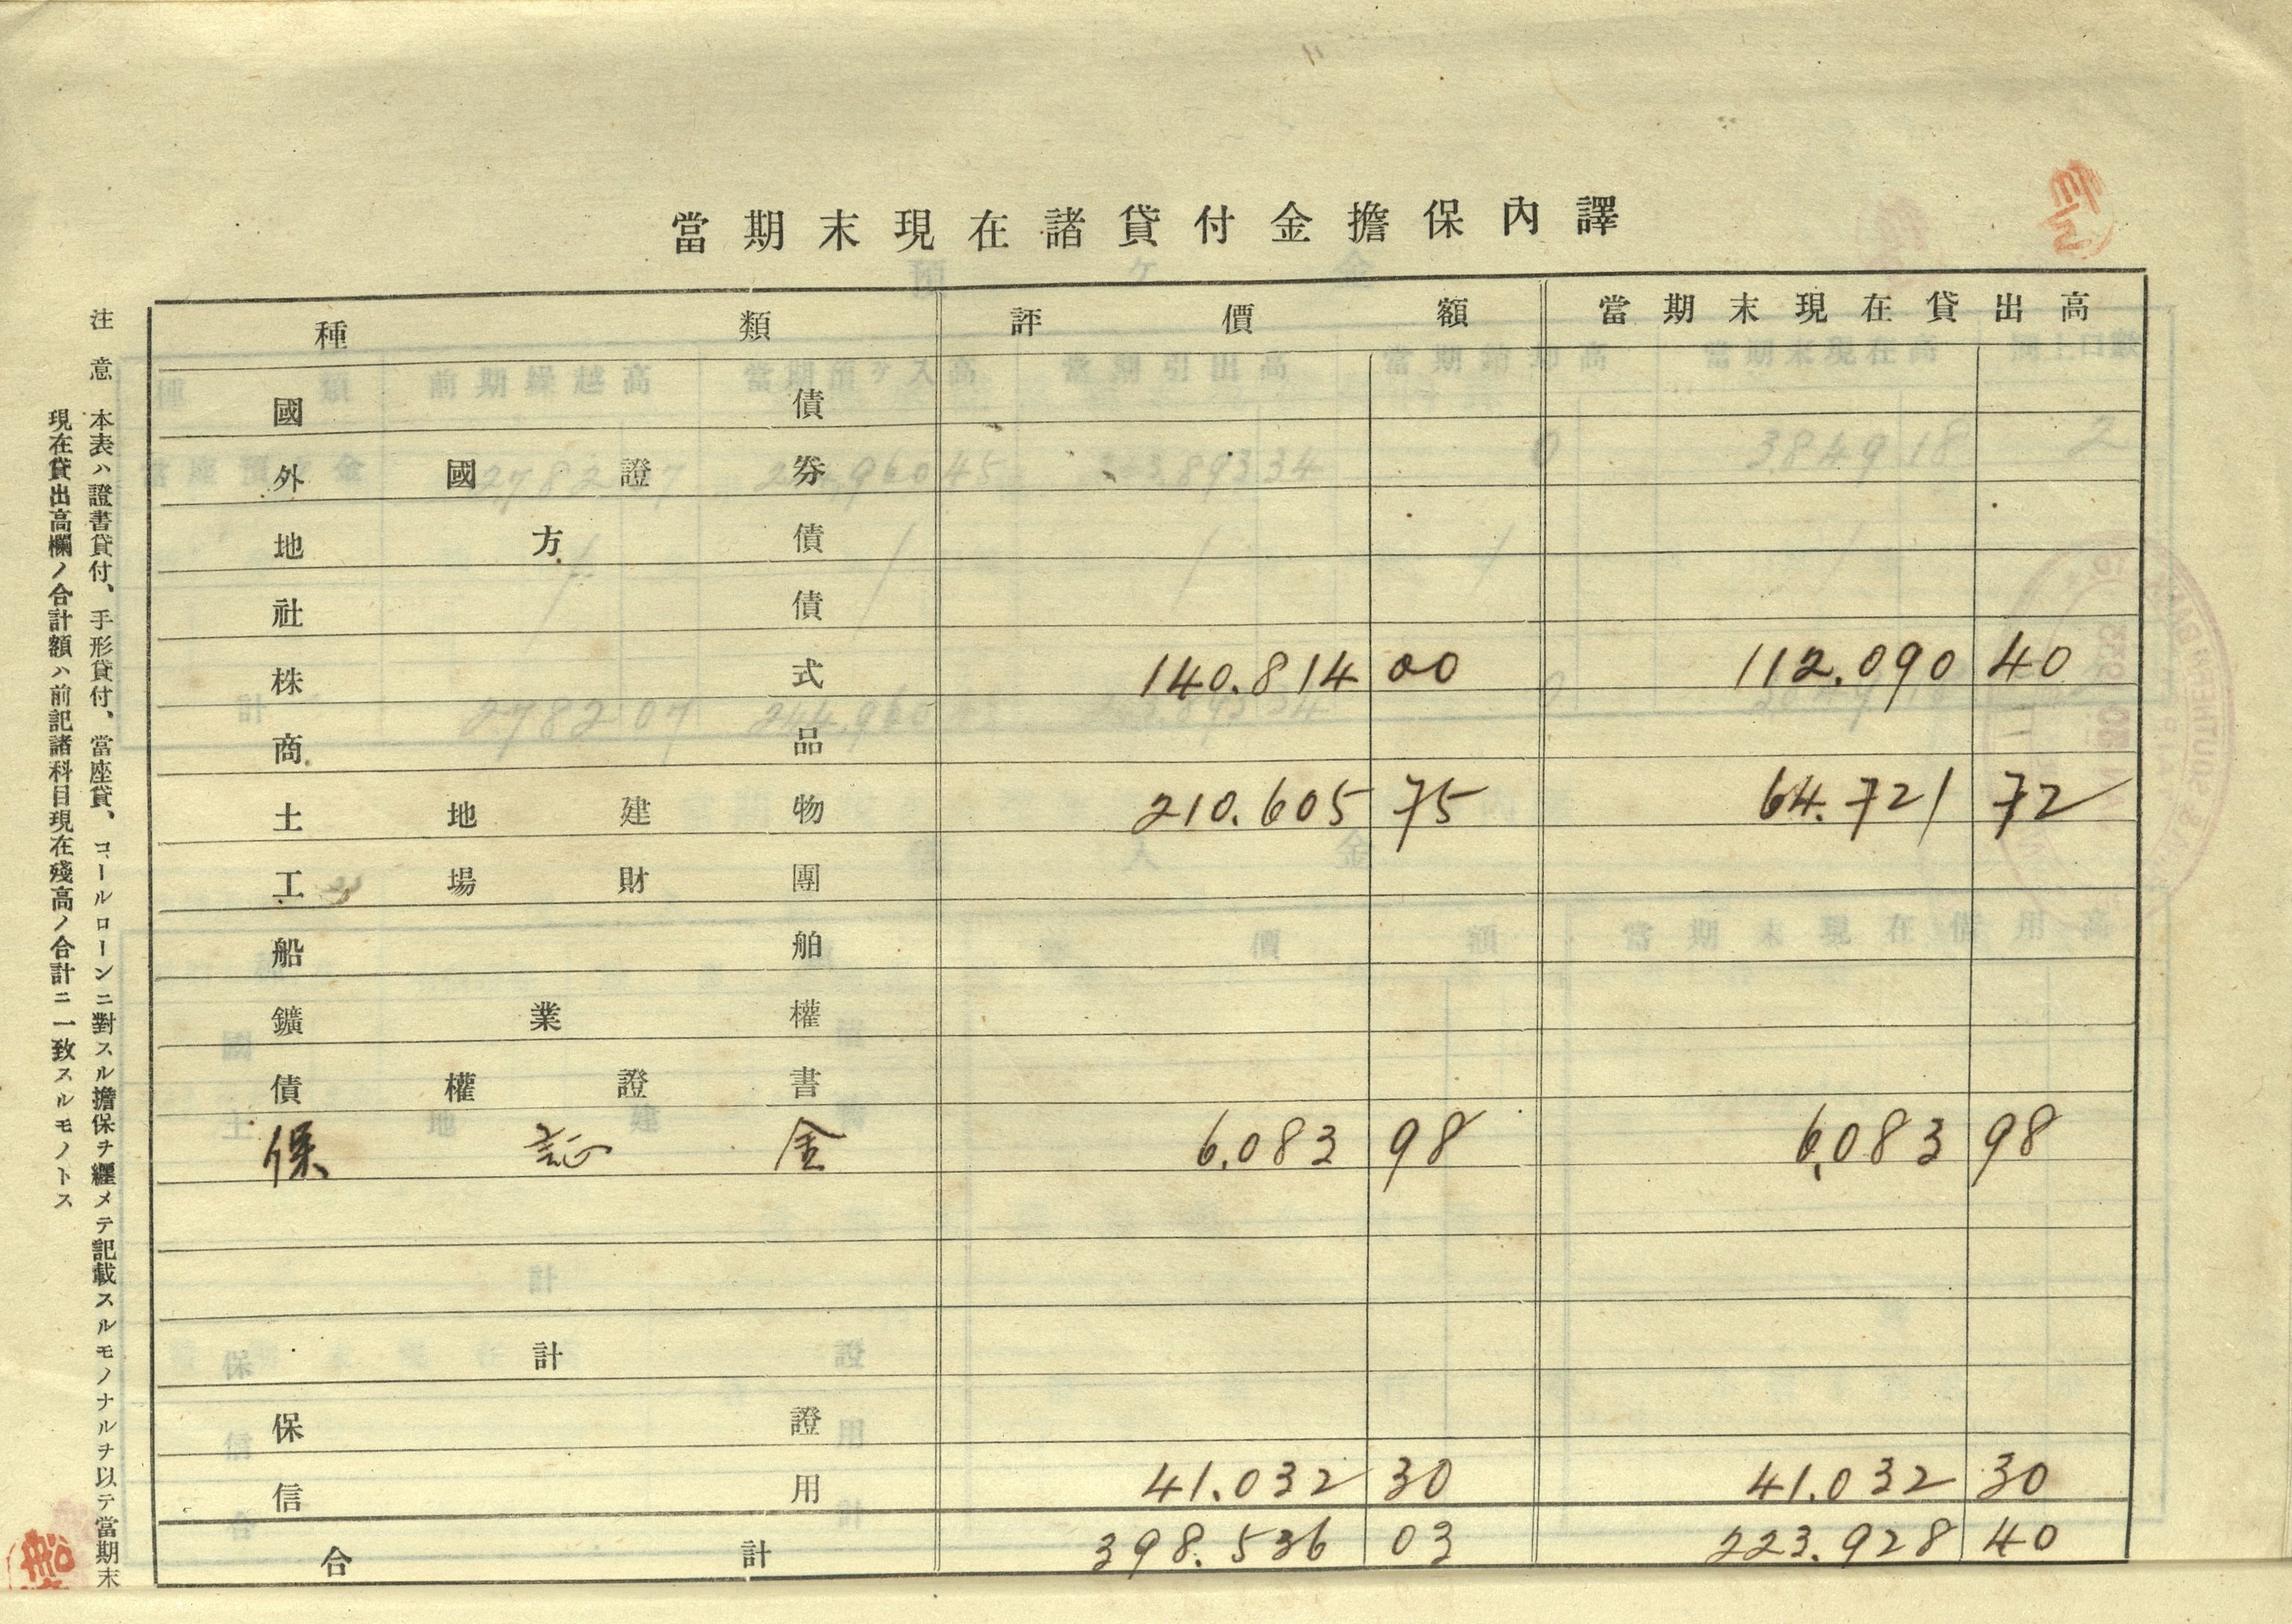 當期末現在諸貸付金擔保內譯
種類 評價額 當期末現在貸出高
國債
外國證券
地方債
社債
株式 140.814 00 112.090 40
商品
土地建物 210.605 75 64.721 72
工場財團
船舶
鑛業權
債權證書
保証金 6.083 98 6.083 98
計
保證
信用 41.032 30 41.032 30
合計 398.536 03 223.928 40
注意 本表ハ證書貸付、手形貸付、當座貸、コールローンニ對スル擔保ヲ纒メテ記載スルモノナルヲ以テ當期末
現在貸出高欄ノ合計額ハ前記諸科目現在殘高ノ合計ニ一致スルモノトス